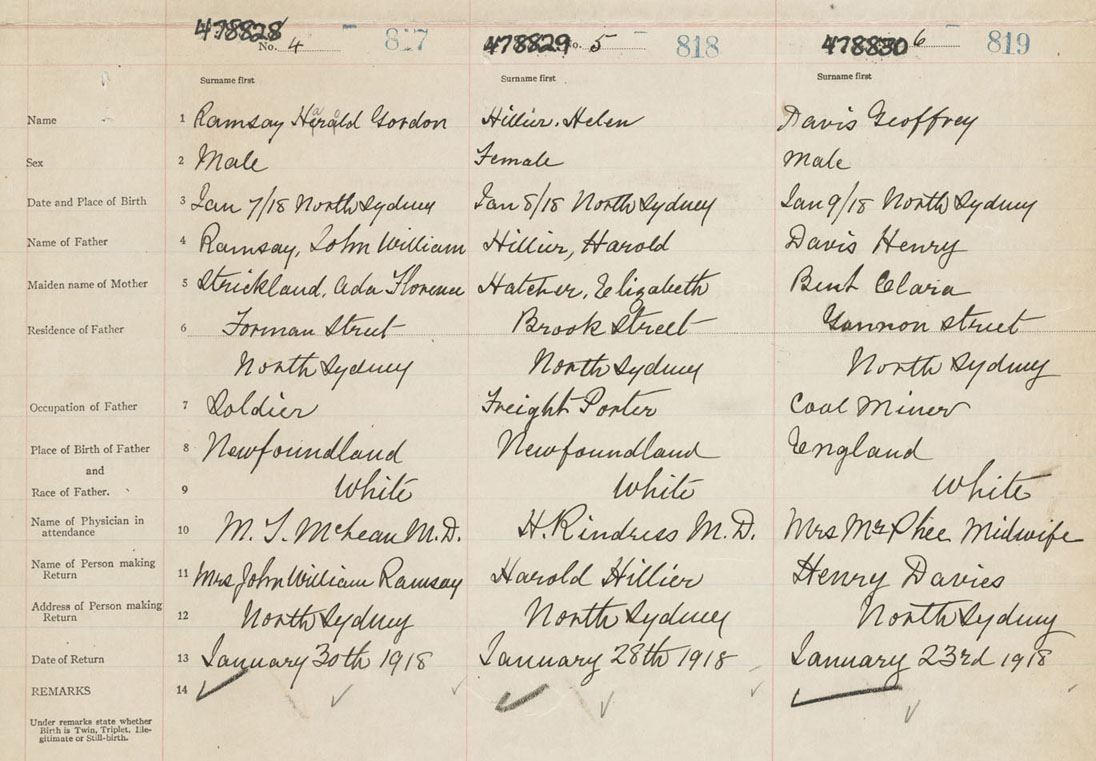 478828 478829 478830
No. 4 817 No. 5 818 6 819
Surname first Surname first Surname first
Name 1 Ramsay Harald Gordon Hillier, Helen Davis Geoffrey
Sex 2 Male Female Male
Date and Place of Birth 3 Jan 7/18 North Sydney Jan 8/18 North Sydney Jan 9/18 North Sydney
Name of Father 4 Ramsay, John William Hillier, Harold Davis Henry
Maiden name of Mother 5 Strickland, Ada Florence Hatcher, Elizabeth Bent Clara
Residence of Father 6 Forman Street Brook Street Gannon street
North Sydney North Sydney North Sydney
Occupation of Father 7 Soldier Freight Porter Coal Miner
Place of Birth of Father 8 Newfoundland Newfoundland England
and
Race of Father. 9 White White White
Name of Physician in
attendance 10 M. T. McLean M.D. H. M.D. Mrs McPhee Midwife
Name of Person making
Return 11 Mrs John William Ramsay Harold Hillier Henry Davies
Address of Person making
Return 12 North Sydney North Sydney North Sydney
Date of Return 13 January 30th 1918 January 28th 1918 January 23rd 1918
REMARKS 14
Under remarks state whether
Birth is Twin, Triplet, Ille-
gitimate or Still-birth.